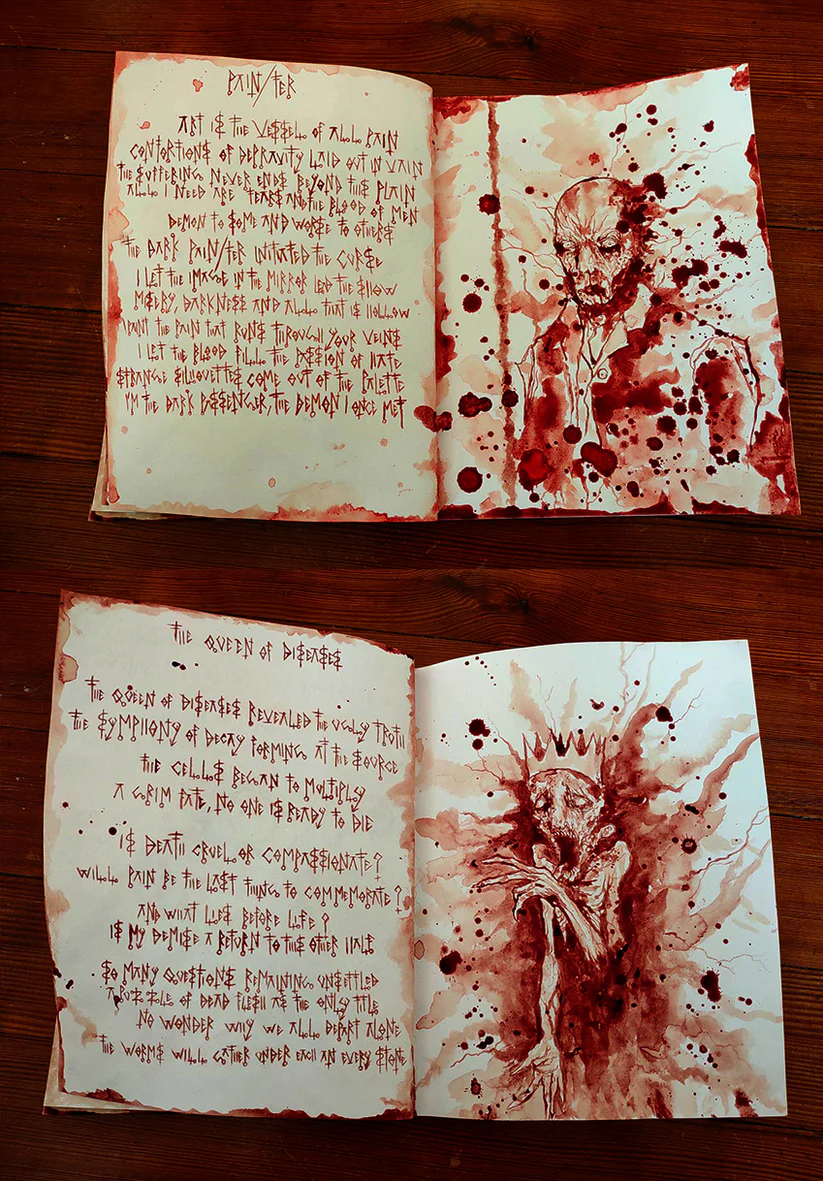 PAIN/TER
ART IS THE VESSEL OF ALL PAIN
CONTORTIONS OF DEPRAVITY LAID OUT IN VAIN
THE SUFFERING NEVER ENDS BEYOND THIS PLAIN
ALL I NEED ARE TEARS AND THE BLOOD OF MEN
DEMON TO SOME AND WORSE TO OTHERS
THE DARK PAIN/TER INITIATED THE CURSE
I LET THE IMAGE IN THE MIRROR LED THE SHOW
MISERY, DARKNESS AND ALL THAT IS HOLLOW
I PAINT THE PAIN THAT RUNS THROUGH YOUR VEINS
I LET THE BLOOD FILL THE POSSION OF HATE
STRANGE SILHOUETTES COME OUT OF THE PALETTE
I'M THE DARK PASSENGER, THE DEMON I ONCE MET
THE QUEEN OF DISEASES
THE QUEEN OF DISEASES REVEALED THE UGLY TRUTH
THE SYMPHONY OF DECAY FORMING AT THE SOURCE
THE CELLS BEGAN TO MULTIPLY
A GRIM FATE, NO ONE IS READY TO DIE
IS DEATH CRUEL OR COMPASSIONATE?
WILL PAIN BE THE LAST THING TO COMMEMORATE?
AND WHAT LIES BEFORE LIFE?
IS MY DEMISE A RETURN TO THIS OTHER HALF
SO MANY QUESTIONS REMAINING UNSETTLED
A PUZZLE OF DEAD FLESH AS THE ONLY TITLE
NO WONDER WHY WE ALL DEPART ALONE
THE WORMS WILL GATHER UNDER EACH AN EVERY STONE